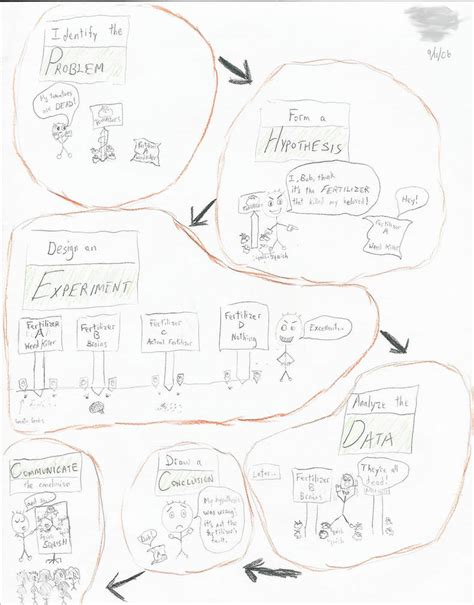 9/11/06
Identify the
PROBLEM
My tomatoes
are DEAD!
Tomatoes
Fertilizer
A
Weed Killer
Form a
HYPOTHESIS
I, Bob, think
it's the FERTILIZER
that killed my beloved!
Hey!
Fertilizer
A
Weed Killer
Design an
EXPERIMENT
Fertilizer
A
Weed Killer
Fertilizer
B
Brains
Fertilizer
C
Actual Fertilizer
Fertilizer
D
Nothing
Excellent...
Analyze the
DATA
Later...
Fertilizer
B
Brains
They're all
dead!
COMMUNICATE
the conclusion
Draw a
CONCLUSION
My hypothesis
was wrong!
it's not the
fertilizer's
fault.